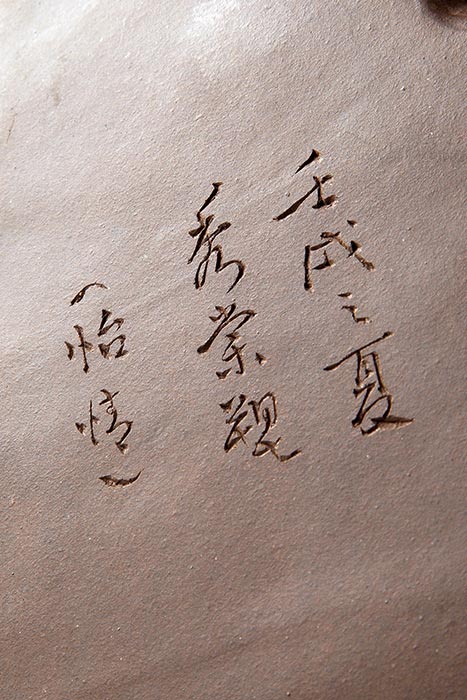 壬戌之夏
秀棠觀
(怡情)